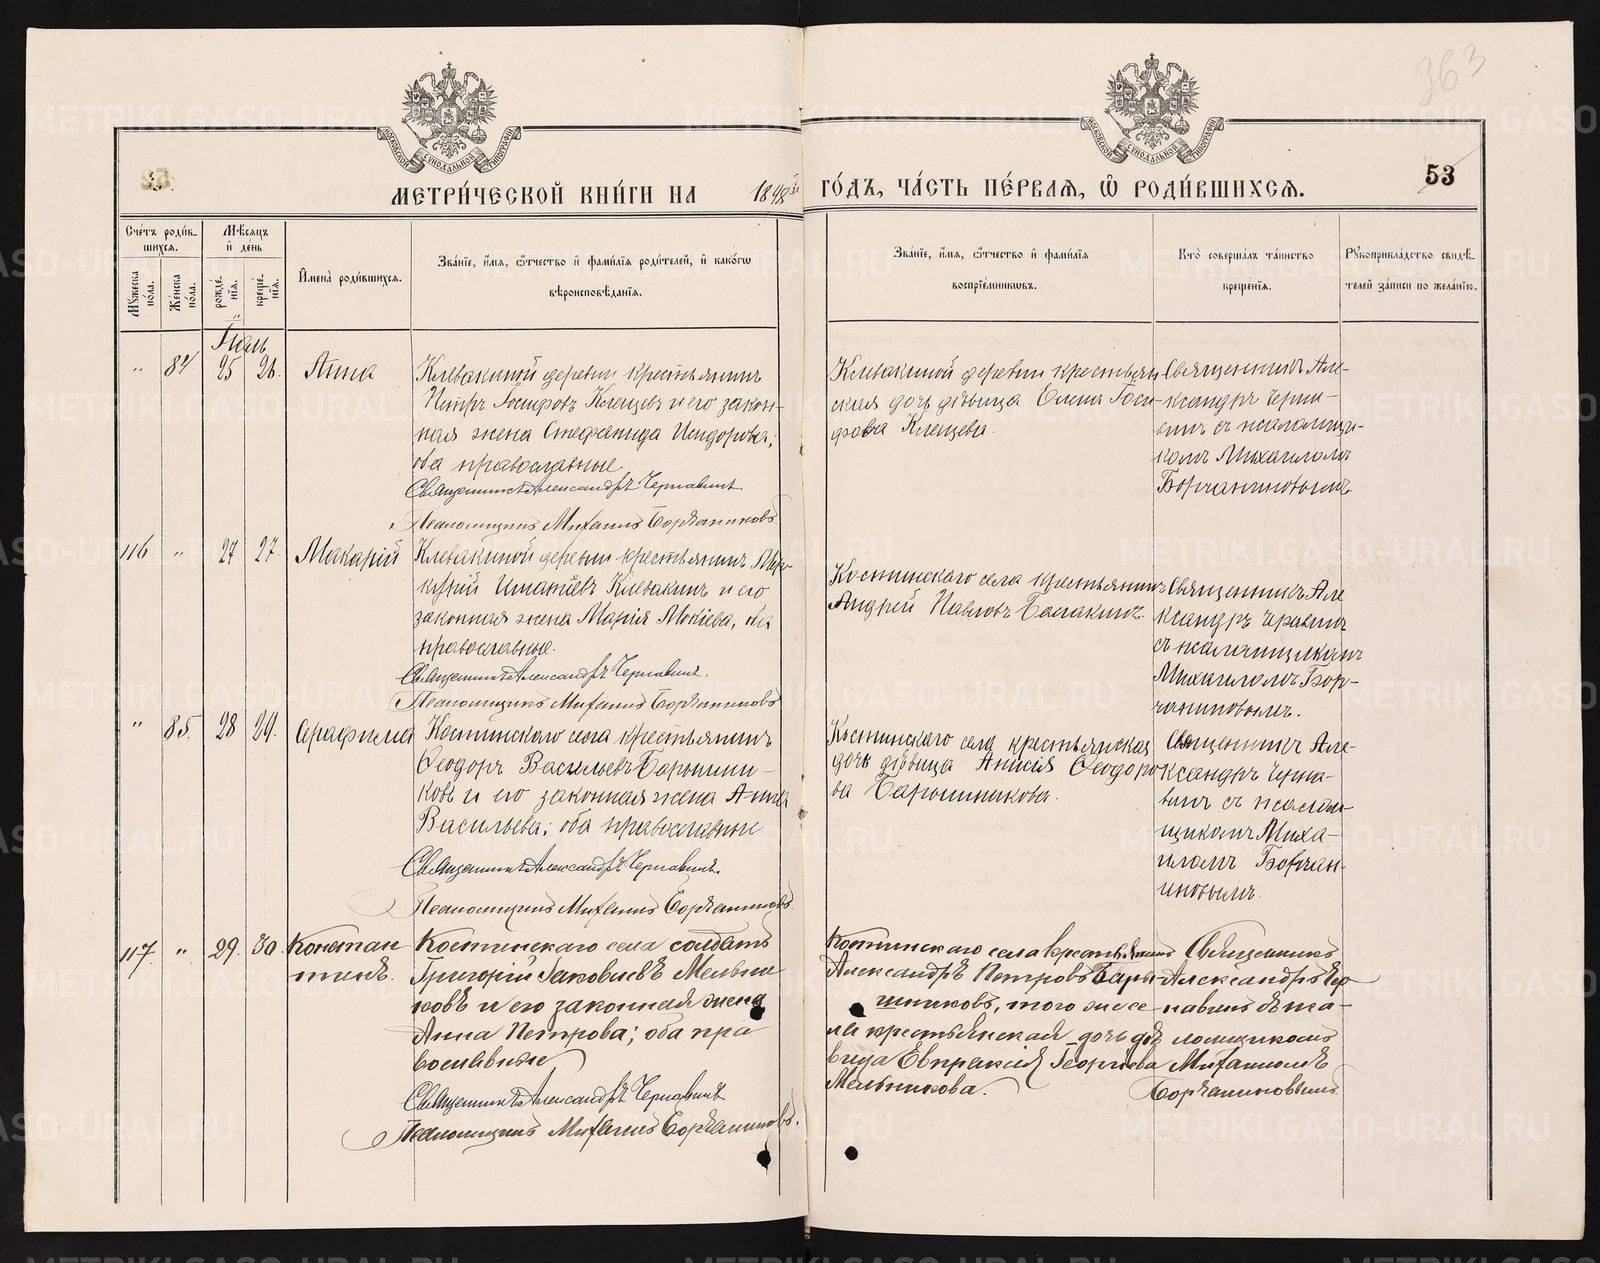 363
53
МЕТРИ́ЧЕСКОЙ КНИ́ГИ НА 1898й ГО́ДЪ, ЧА́СТЬ ПЕ́РВАѦ, Ѡ҆ РОДИ́ВШИХСѦ.
Сче́тъ роди́в-
шихсѧ.
Мꙋ́жеска по́ла.
Же́нска по́ла.
Мѣ́сѧцъ
и҆ де́нь
рожде́-
нїѧ.
креще́-
нїѧ.
И҆мена̀ роди́вшихсѧ.
Зва́нїе, и҆́мѧ, ѻ҆́тчество и҆ фами́лїѧ роди́телей, и҆ како́гѡ
вѣроисповѣ́данїѧ.
Зва́нїе, и҆́мѧ, ѻ҆́тчество и҆ фами́лїѧ
воспрїе́мникѡвъ.
Кто̀ соверша́лъ та́инство
креще́нїѧ.
Рꙋкоприкла́дство свидѣ́-
телей за́писи по жела́нїю.
Іюль
" 84 25 26. Анна
Клевакиной деревни крестьянинъ
Петръ Іосифовъ Клещевъ и его закон-
ная жена Стефанида Исидорова;
оба православные
Священникъ Александръ Чернавинъ.
Псаломщикъ Михаилъ Борчаниновъ
Клевакиной деревни крестьян-
ская дочь дѣвица Елена Іоси-
фова Клещева.
Священникъ Але-
ксандръ Черна-
винъ съ псаломщи-
комъ Михаиломъ
Борчаниновымъ.
116 " 27 27. Макарій
Клевакиной деревни крестьянинъ Мер-
курій Игнатіевъ Клевакинъ и его
законная жена Марія Мокіева; оба
православные.
Священникъ Александръ Чернавинъ.
Псаломщикъ Михаилъ Борчаниновъ
Костинскаго села крестьянинъ
Андрей Павловъ Балакинъ.
Священникъ Але
ксандръ Чернавинъ
съ псаломщикомъ
Михаиломъ Бор-
чаниновымъ.
" 85. 28 29. Серафима
Костинскаго села крестьянинъ
Ѳеодоръ Васильевъ Барышни-
ковъ и его законная жена Анна
Васильева; оба православные.
Священникъ Александръ Чернавинъ.
Псаломщикъ Михаилъ Борчаниновъ.
Костинскаго села крестьянская
дочь дѣвица Анисія Ѳеодоро
ва Барышникова.
Священникъ Але-
ксандръ Черна-
винъ съ псалом-
щикомъ Миха-
иломъ Борчан-
иновымъ.
117. " 29. 30. Констан
тинъ.
Костинскаго села солдатъ
Григорій Іаковлевъ Мельни
ковъ и его законная жена
Анна Петрова; оба пра
вославные
Священникъ Александръ Чернавинъ
Псаломщикъ Михаилъ Борчаниновъ.
Костинскаго села крестьянинъ
Александръ Петровъ Бары-
шниковъ, того же се
ла крестьянская дочь дѣ
вица Евпраксія Георгіева
Мельникова.
Священникъ
Александръ Чер
навинъ съ пса-
ломщикомъ
Михаиломъ
Борчаниновымъ.